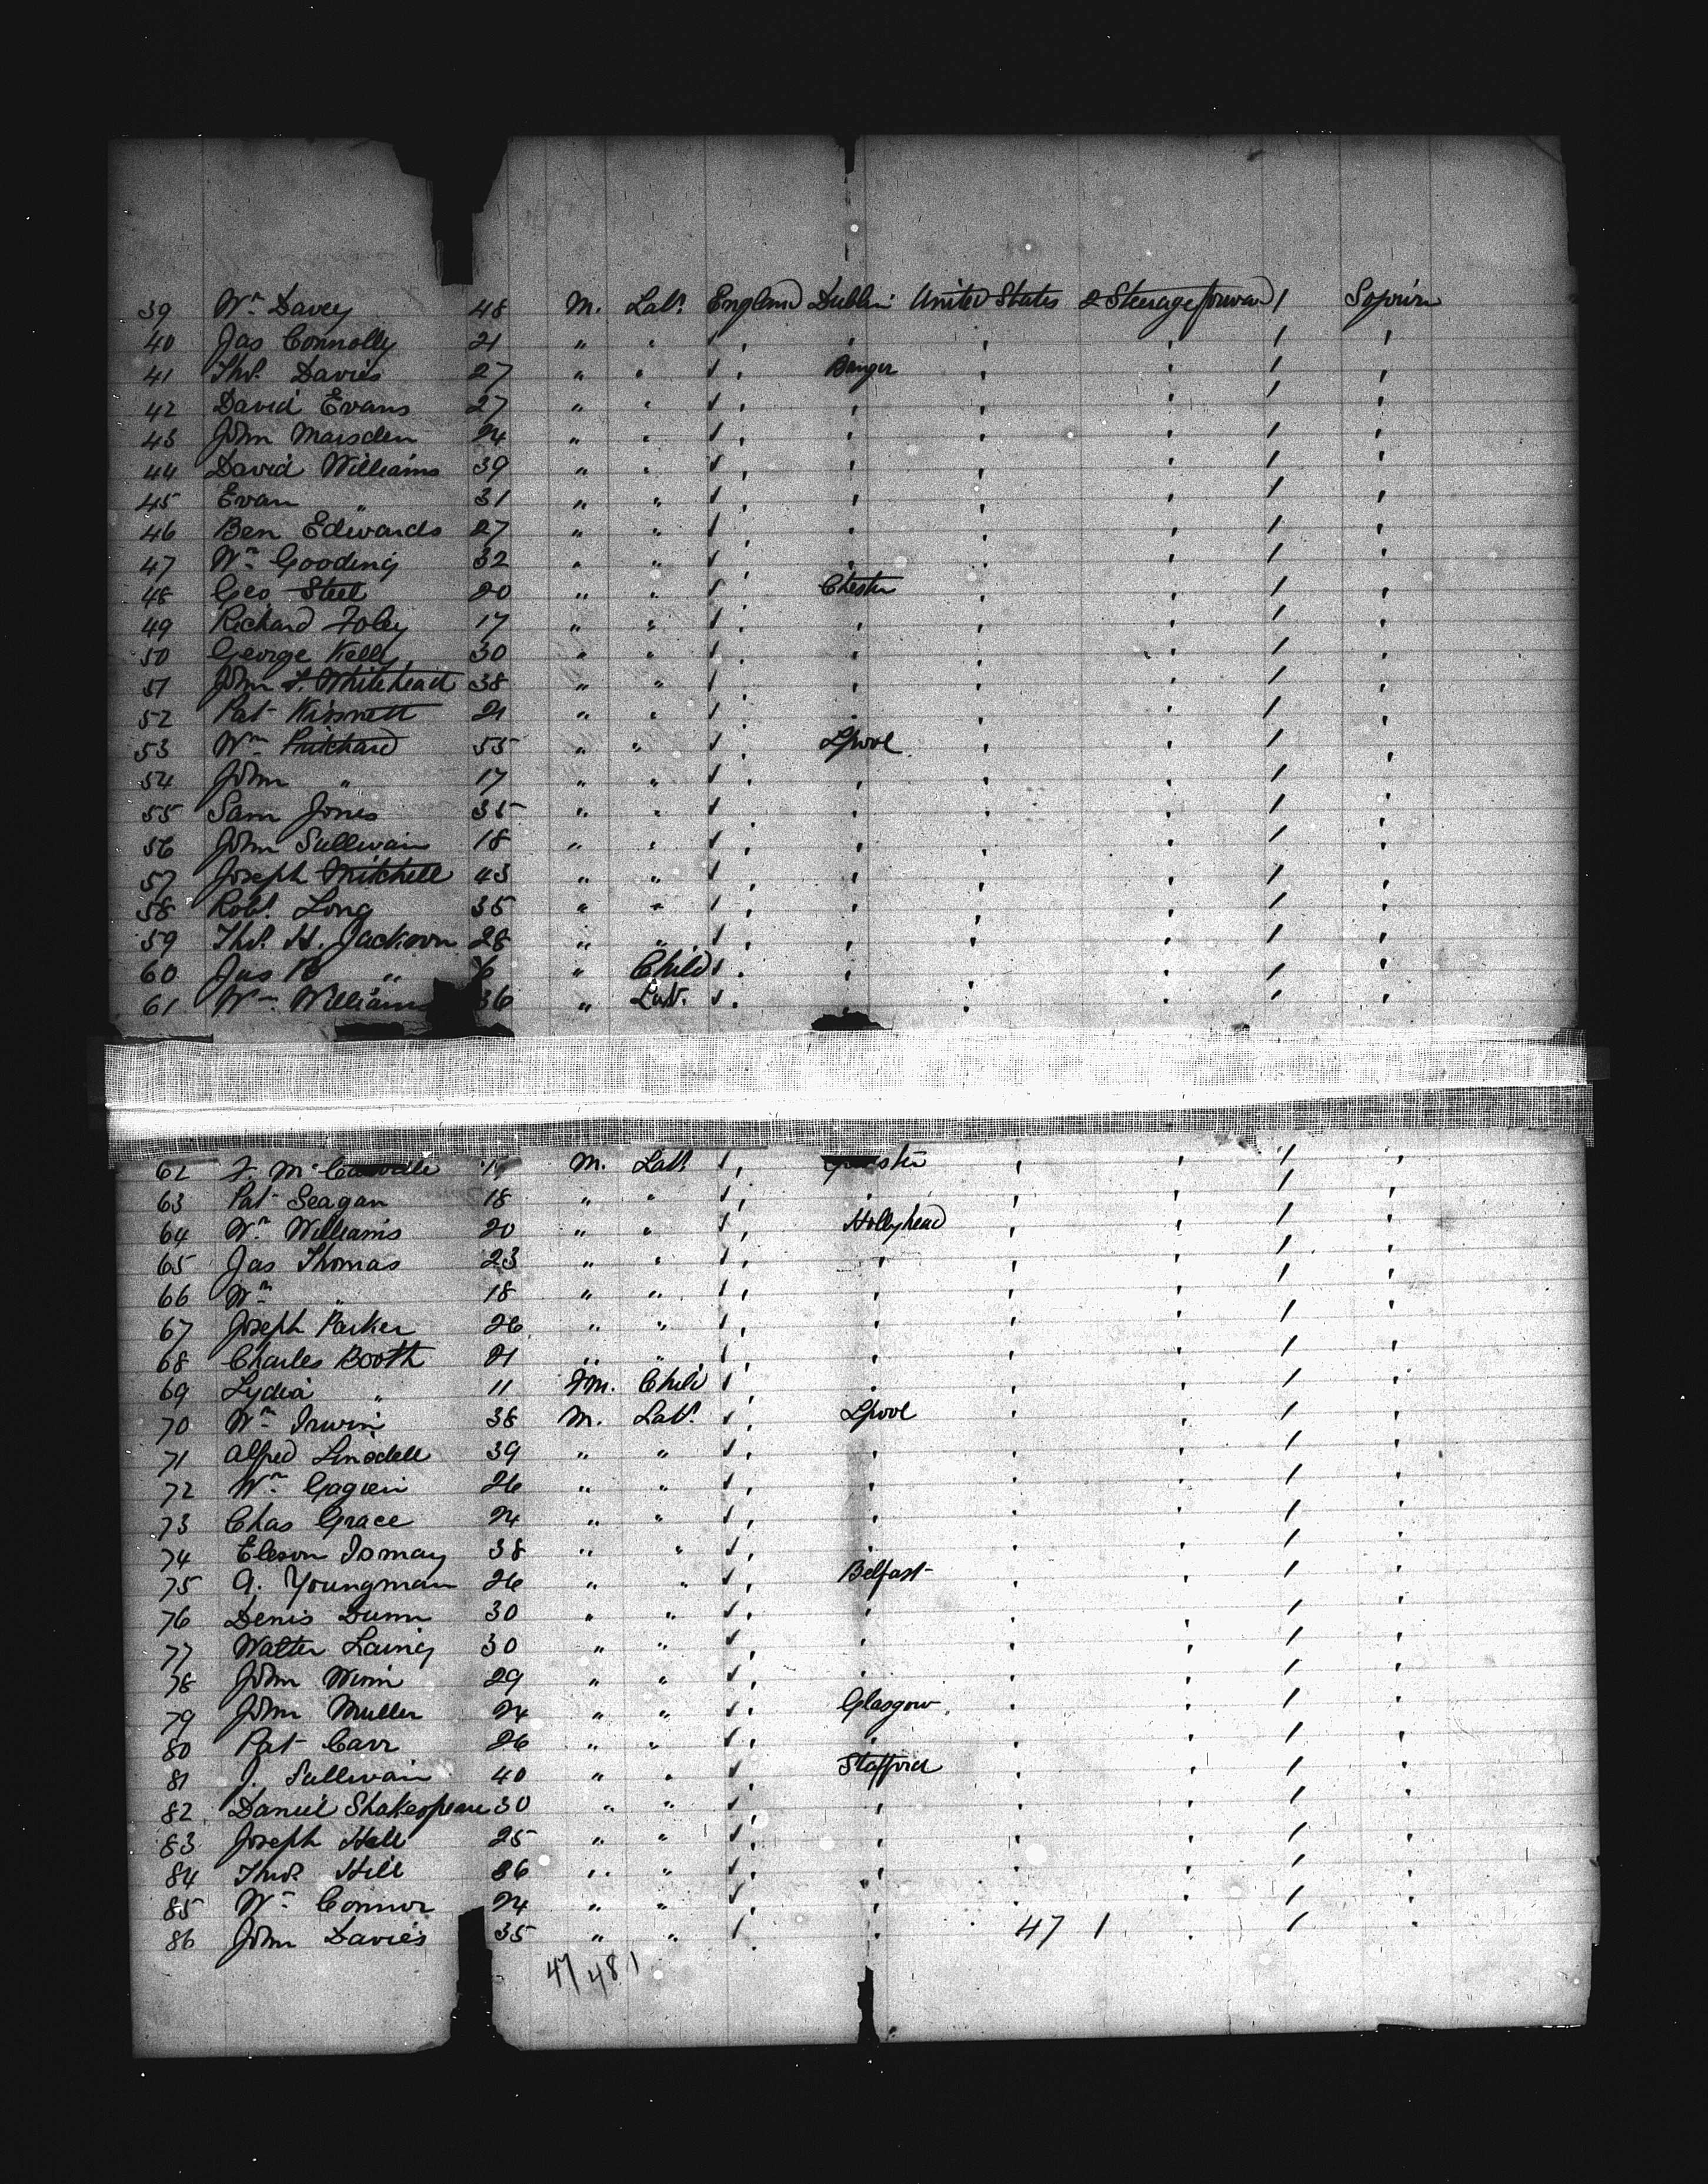 39 Wm Davey 48 M. Labr. England Dublin United States & Steerage forward / Sojourn
40 Jas Connolly 21 " " ✓ , , , , / ,
41 Thos. Davies 27 " " ✓ , Bangor , , / ,
42 David Evans 27 " " ✓ , , , , / ,
43 John Marsden 24 " " ✓ , , , , / ,
44 David Williams 39 " " ✓ , , , , / ,
45 Evan " 31 " " ✓ , , , , / ,
46 Ben Edwards 27 " " ✓ , , , , / ,
47 Wm Gooding 32 " " ✓ , , , , / ,
48 Geo Steel 20 " " ✓ , Chester , , / ,
49 Richard Foley 17 " " ✓ , , , , / ,
50 George Kelly 30 " " ✓ , , , , / ,
51 John F. Whitehead 38 " " ✓ , , , , / ,
52 Pat 21 " " ✓ , , , , / ,
53 Wm Pritchard 55 " " ✓ , Lpool , , / ,
54 John " 17 " " ✓ , , , , / ,
55 Sam Jones 35 " " ✓ , , , , / ,
56 John Sullivan 18 " " ✓ , , , , / ,
57 Joseph Mitchell 43 " " ✓ , , , , / ,
58 Robt. Long 35 " " ✓ , , , , / ,
59 Thos. H. Jackson 28 " " ✓ , , , , / ,
60 Jas B " 6 " Child ✓ , , , , / ,
61 Wm Williams 36 " Labr. ✓ , , , , / ,
62 F. Mc M. Labr ✓ , , , / ,
63 Pat Seagan 18 " " ✓ , , , , / ,
64 Wm Williams 20 " " ✓ , Hollyhead , , / ,
65 Jas Thomas 23 " " ✓ , , , , / ,
66 Wm " 18 " " ✓ , , , , / ,
67 Joseph Parker 26 " " ✓ , , , , / ,
68 Charles Booth 21 " " ✓ , , , , / ,
69 Lydia " 11 Fm. Child ✓ , , , , / ,
70 Wm Irwin 38 M. Labr. ✓ , Lpool , , / ,
71 Alfred Linsdell 39 " " ✓ , , , , / ,
72 Wm 26 " " ✓ , , , , / ,
73 Chas Grace 24 " " ✓ , , , , / ,
74 Eleson Ismay 38 " " ✓ , , , , / ,
75 A. Youngman 26 " " ✓ , Belfast , , / ,
76 Denis Dunn 30 " " ✓ , , , , / ,
77 Walter Laing 30 " " ✓ , , , , / ,
78 John 29 " " ✓ , , , , / ,
79 John Muller 24 " " ✓ , Glasgow , , / ,
80 Pat Carr 26 " " ✓ , , , , / ,
81 J. Sullivan 40 " " ✓ Stafford , , / ,
82 Daniel Shakespeare 30 " " ✓ , , , , / ,
83 Joseph Hall 25 " " ✓ , , , , / ,
84 Thos. Hill 36 " " ✓ , , , , / ,
85 Wm Connor 24 " " ✓ , , , / ,
86 John Davies 35 " " / . , 47 1 , / ,
47 48 1